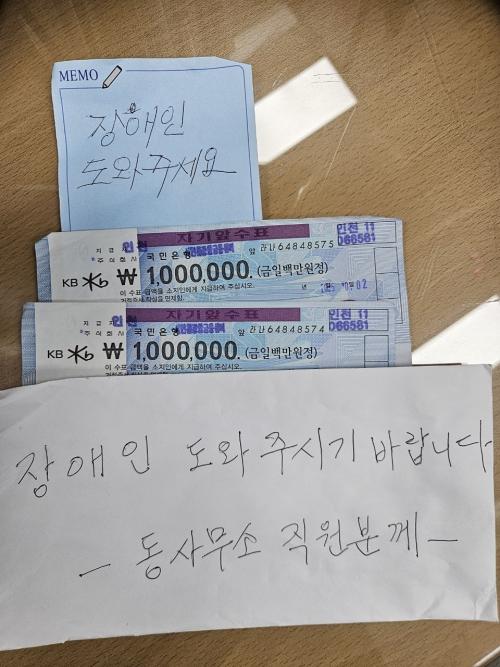 MEMO
장애인
도와주세요
자기앞수표
인천 11
066561
지급지 인천
주식회사 국민은행 앞 라나64848575
KB ₩ 1,000,000. (금일백만원정)
이 수표 금액을 소지인에게 지급하여 주십시오
거절증서 작성을 면제함.
자기앞수표
인천 11
066561
인천
주식회사 국민은행 앞 라나64848574
KB ₩ 1,000,000. (금일백만원정)
이 수표 금액을 소지인에게 지급하여 주십시오.
장애인 도와 주시기 바랍니다
- 동사무소 직원분께 -